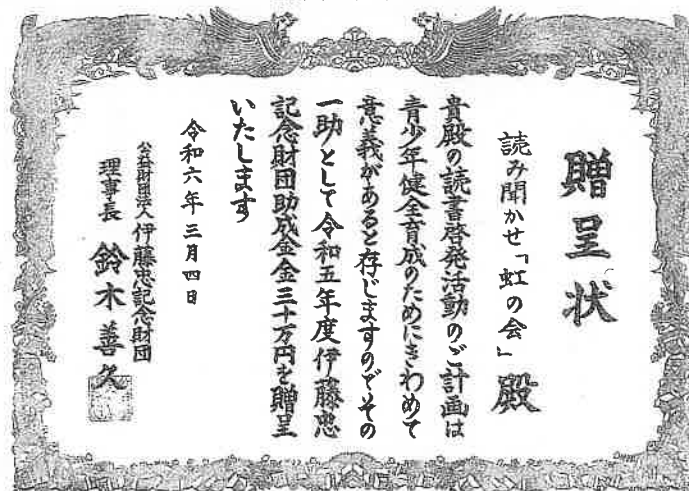 贈呈状
読み聞かせ「虹の会」殿
貴殿の読書啓発活動のご計画は
青少年健全育成のためにきわめて
意義があると存じますのでその
一助として令和五年度伊藤忠
記念財団助成金金三十万円を贈呈
いたします
令和六年三月四日
公益財団法人伊藤忠記念財団
理事長 鈴木善久